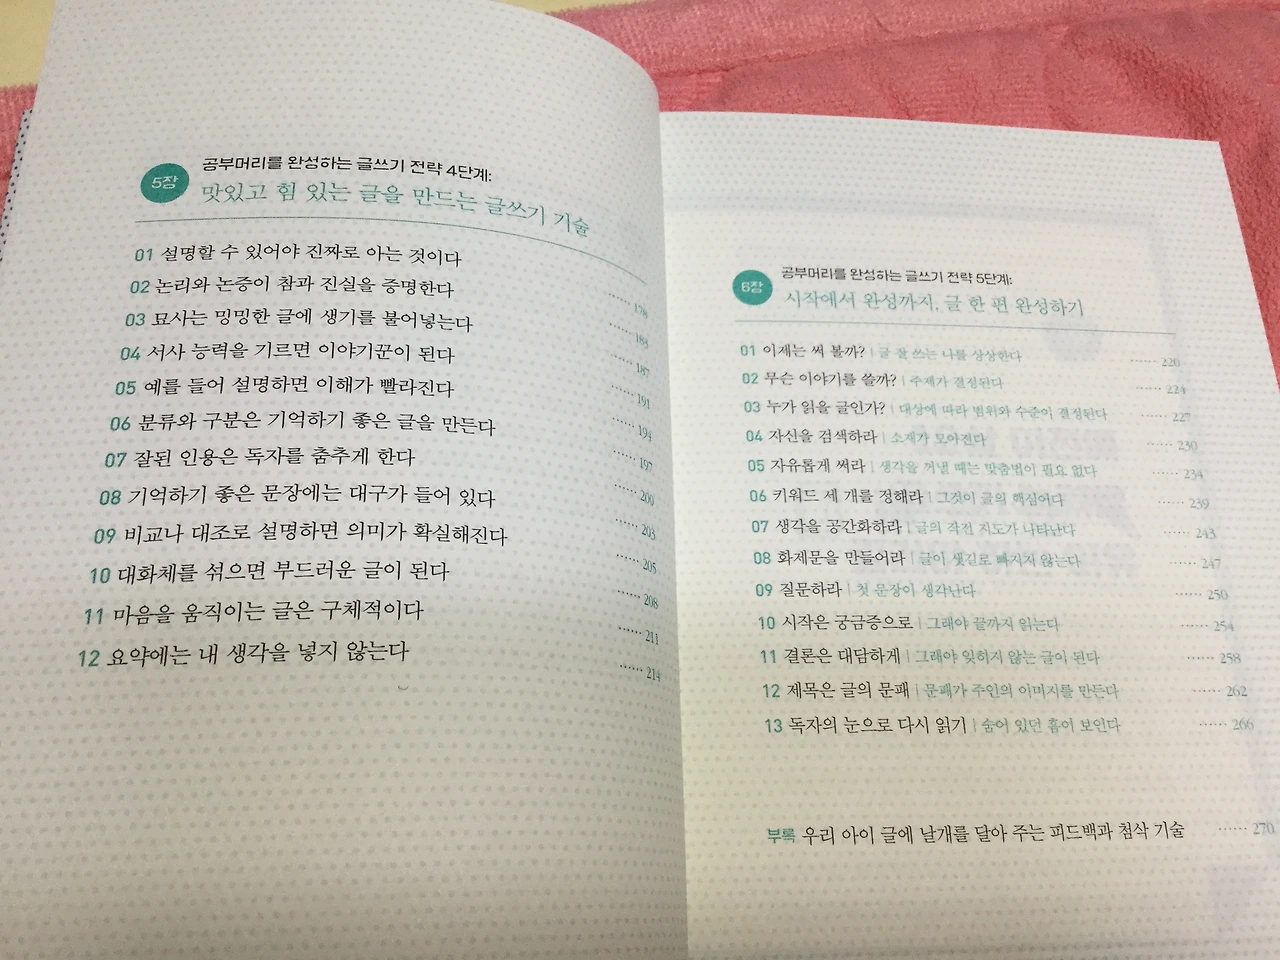 5장
공부머리를 완성하는 글쓰기 전략 4단계:
맛있고 힘 있는 글을 만드는 글쓰기 기술
01 설명할 수 있어야 진짜로 아는 것이다 ······ 178
02 논리와 논증이 참과 진실을 증명한다 ······ 183
03 묘사는 밍밍한 글에 생기를 불어넣는다 ······ 187
04 서사 능력을 기르면 이야기꾼이 된다 ······ 191
05 예를 들어 설명하면 이해가 빨라진다 ······ 194
06 분류와 구분은 기억하기 좋은 글을 만든다 ······ 197
07 잘된 인용은 독자를 춤추게 한다 ······ 200
08 기억하기 좋은 문장에는 대구가 들어 있다 ······ 203
09 비교나 대조로 설명하면 의미가 확실해진다 ······ 205
10 대화체를 섞으면 부드러운 글이 된다 ······ 208
11 마음을 움직이는 글은 구체적이다 ······ 211
12 요약에는 내 생각을 넣지 않는다 ······ 214
6장
공부머리를 완성하는 글쓰기 전략 5단계:
시작에서 완성까지, 글 한 편 완성하기
01 이제는 써 볼까? | 글 잘 쓰는 나를 상상한다 ······ 220
02 무슨 이야기를 쓸까? | 주제가 결정된다 ······ 224
03 누가 읽을 글인가? | 대상에 따라 범위와 수준이 결정된다 ······ 227
04 자신을 검색하라 | 소재가 모아진다 ······ 230
05 자유롭게 써라 | 생각을 꺼낼 때는 맞춤법이 필요 없다 ······ 234
06 키워드 세 개를 정해라 | 그것이 글의 핵심어다 ······ 239
07 생각을 공간화하라 | 글의 작전 지도가 나타난다 ······ 243
08 화제문을 만들어라 | 글이 샛길로 빠지지 않는다 ······ 247
09 질문하라 | 첫 문장이 생각난다 ······ 250
10 시작은 궁금증으로 | 그래야 끝까지 읽는다 ······ 254
11 결론은 대담하게 | 그래야 잊히지 않는 글이 된다 ······ 258
12 제목은 글의 문패 | 문패가 주인의 이미지를 만든다 ······ 262
13 독자의 눈으로 다시 읽기 | 숨어 있던 흠이 보인다 ······ 266
부록 우리 아이 글에 날개를 달아 주는 피드백과 첨삭 기술 ······ 270